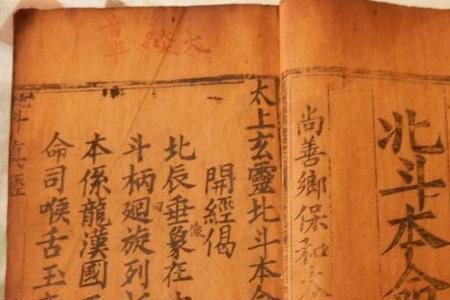 北斗本命
尚善鄉保和
太上玄靈北斗本命
開經偈
北辰垂象在
像
斗柄迴旋列
本係龍漢國
命司喉舌玉
北斗真經
大